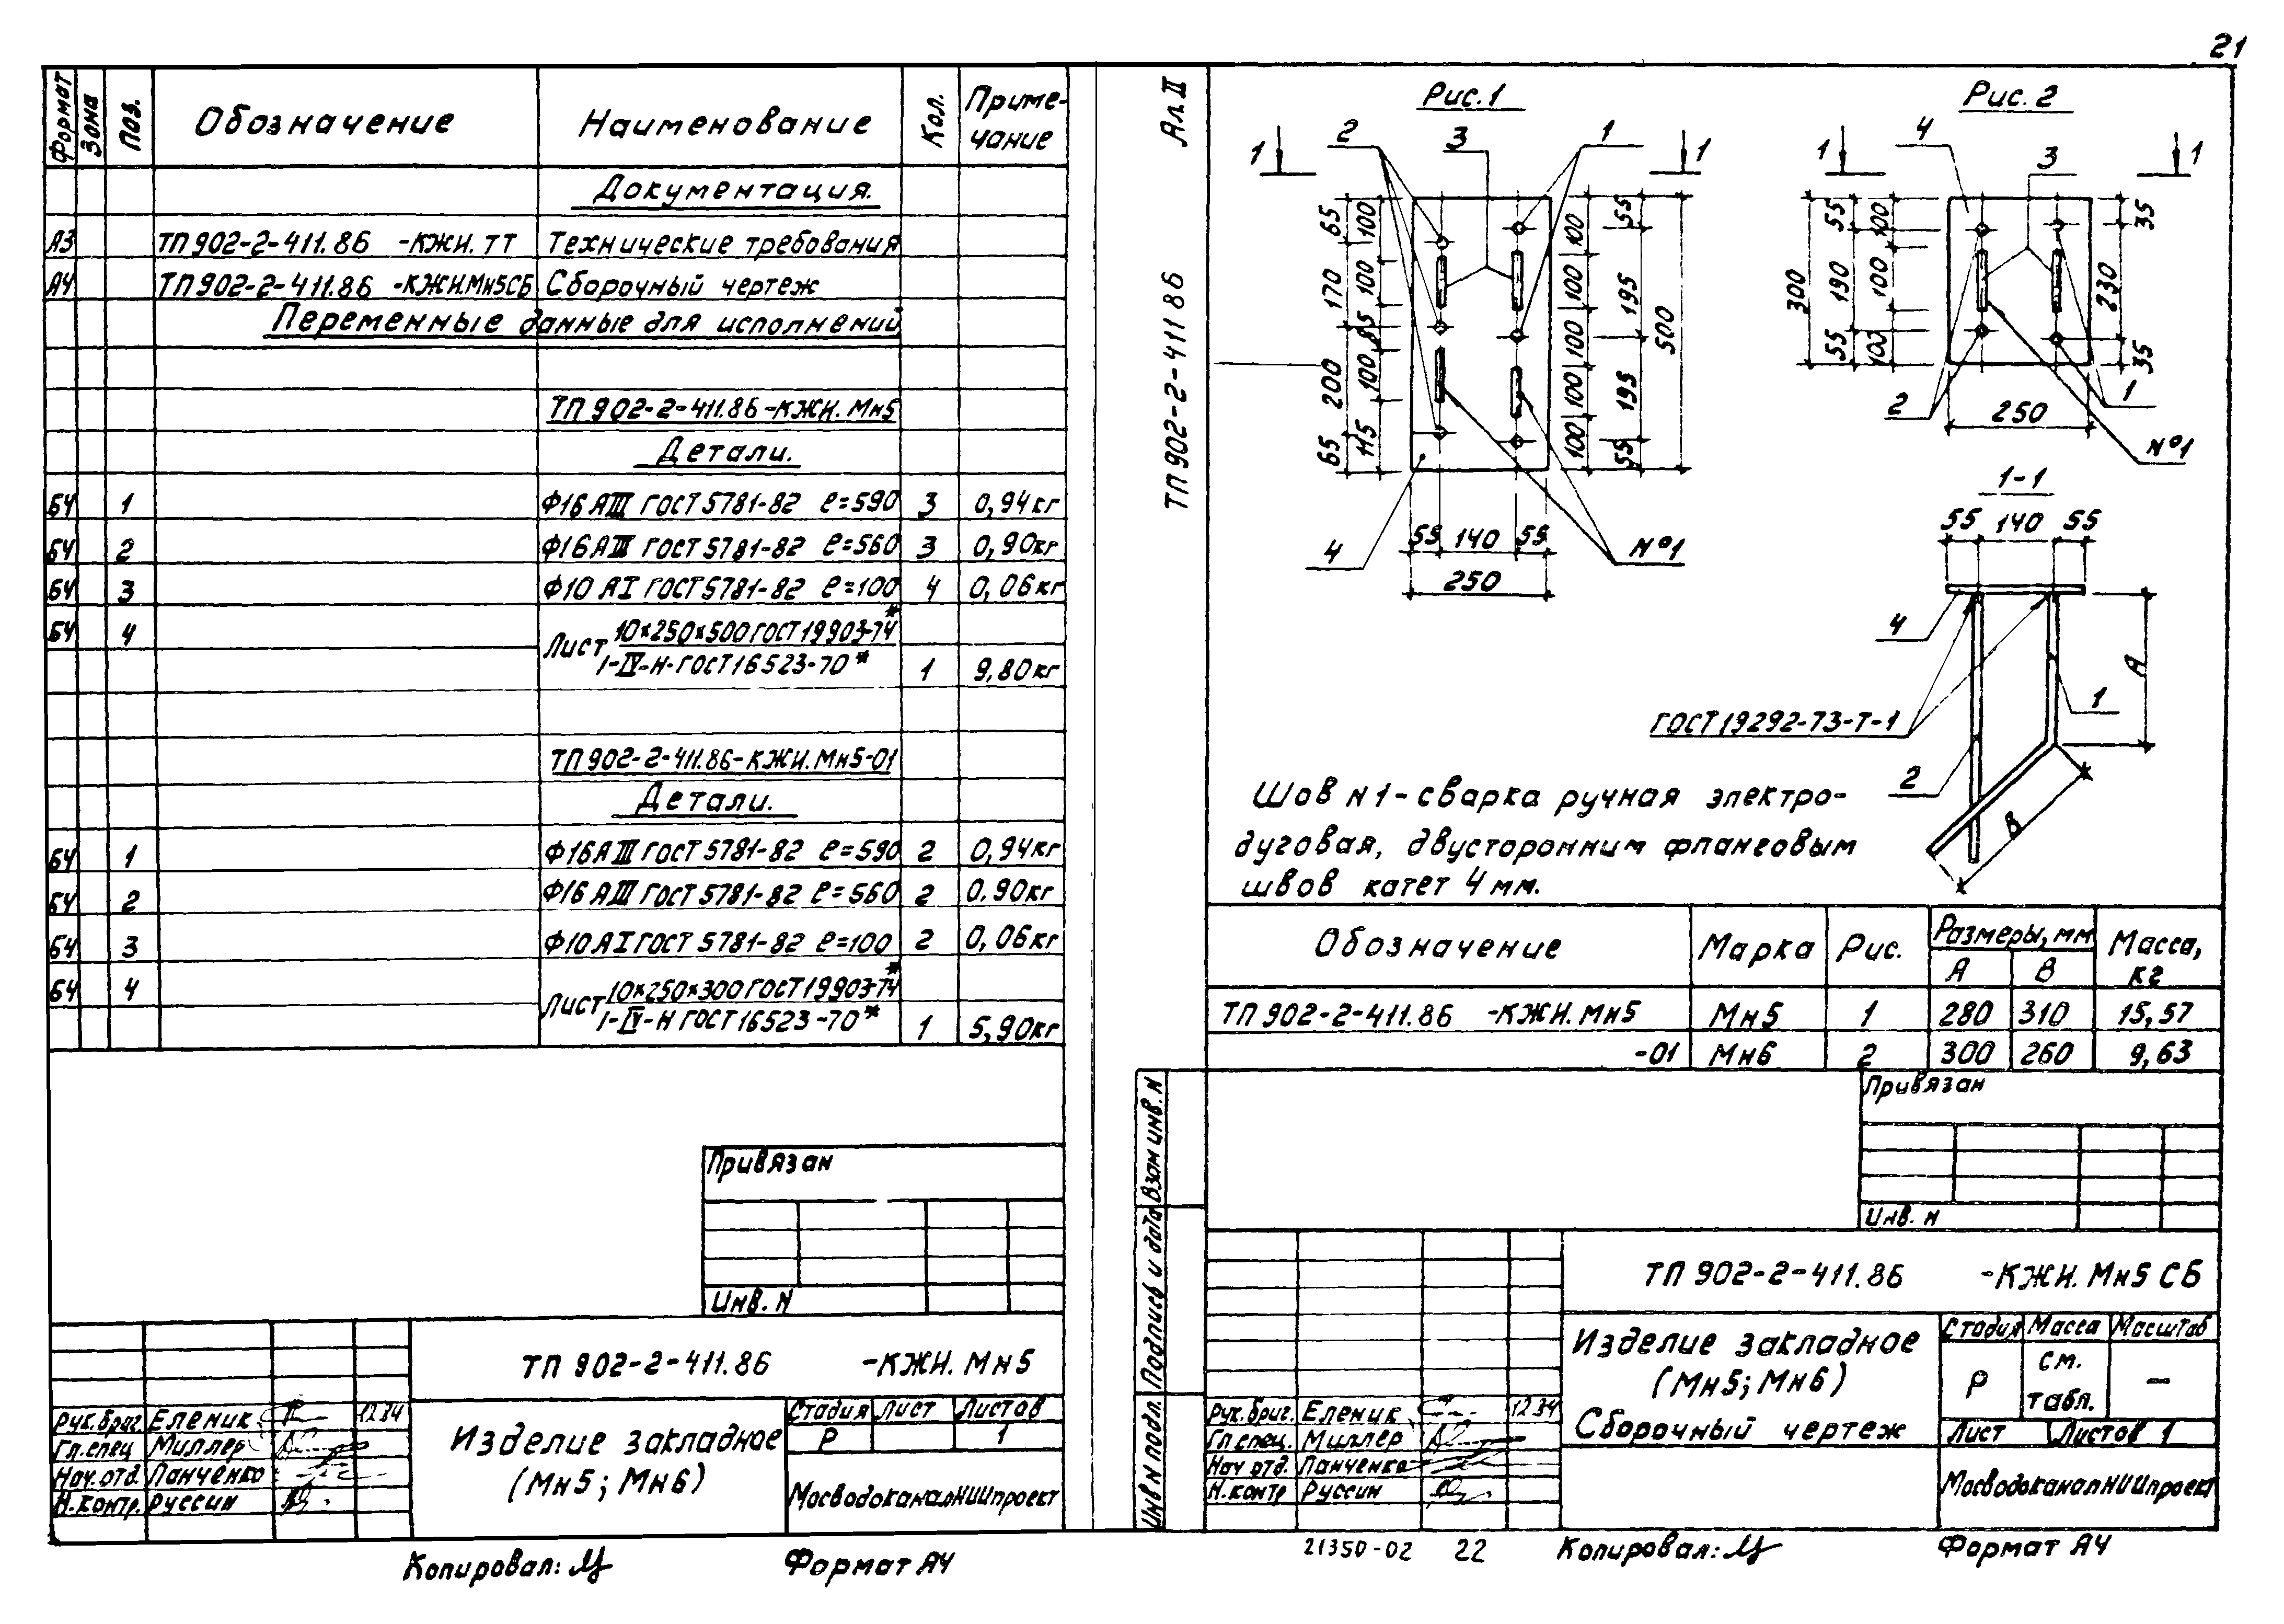 21
Формат Зона Поз. Обозначение Наименование Кол. Приме-
чание
Документация.
А3 ТП902-2-411.86 -КЖИ.ТТ Технические требования
А4 ТП902-2-411.86 -КЖИ.Мн5СБ Сборочный чертеж
Переменные данные для исполнений
ТП902-2-411.86-КЖИ.Мн5
Детали.
БЧ 1 Ф16 АIII ГОСТ 5781-82 ℓ=590 3 0,94кг
БЧ 2 Ф16 АIII ГОСТ 5781-82 ℓ=560 3 0,90кг
БЧ 3 Ф10 АI ГОСТ 5781-82 ℓ=100 4 0,06кг
БЧ 4 Лист 10×250×500 ГОСТ 19903-74*
1-IV-Н-ГОСТ 16523-70* 1 9,80кг
ТП902-2-411.86-КЖИ.Мн5-01
Детали.
БЧ 1 Ф16 АIII ГОСТ 5781-82 ℓ=590 2 0,94кг
БЧ 2 Ф16 АIII ГОСТ 5781-82 ℓ=560 2 0.90кг
БЧ 3 Ф10 АI ГОСТ 5781-82 ℓ=100 2 0,06кг
БЧ 4 Лист 10×250×300 ГОСТ 19903-74*
1-IV-Н ГОСТ 16523-70* 1 5,90кг
Привязан
Инв. N
ТП 902-2-411.86 -КЖИ. Мн5
Рук.бриг. Еленик 12.84
Гл.спец Миллер
Нач.отд. Панченко
Н.контр. Руссин
Изделие закладное
(Мн5; Мн6)
Стадия Лист Листов
Р 1
МосводоканалНИИпроект
Копировал:
Формат А4
Ал.II
ТП 902-2-411 86
Взам инв. N
Подпись и дата
Инв N подл.
Рис.1
1 2 3 1 1
65 170 200 65
100 100 85 100 115
100 100 100 100 100
55 195 195 55
500
55 140 55
250
4
N°1
Рис. 2
1 4 3 1
300
55 190 55
100 100 100
35 230 35
2 250 1
N°1
1-1
55 140 55
4
А
1
ГОСТ 19292-73-Т-1
2
В
Шов N1 - сварка ручная электро-
дуговая, двусторонним фланговым
швов катет 4 мм.
Обозначение Марка Рис. Размеры, мм Масса,
кг
А В
ТП 902-2-411.86 -КЖИ.Мн5 Мн5 1 280 310 15,57
-01 Мн6 2 300 260 9,63
Привязан
Инв. N
ТП 902-2-411.86 -КЖИ. Мн5 СБ
Рук.бриг. Еленик 12 84
Гл.спец. Миллер
Нач отд. Панченко
Н.контр Руссин
Изделие закладное
(Мн5; Мн6)
Сборочный чертеж
Стадия Масса Масштаб
Р см.
табл. —
Лист Листов 1
МосводоканалНИИпроект
21350-02 22
Копировал:
Формат А4